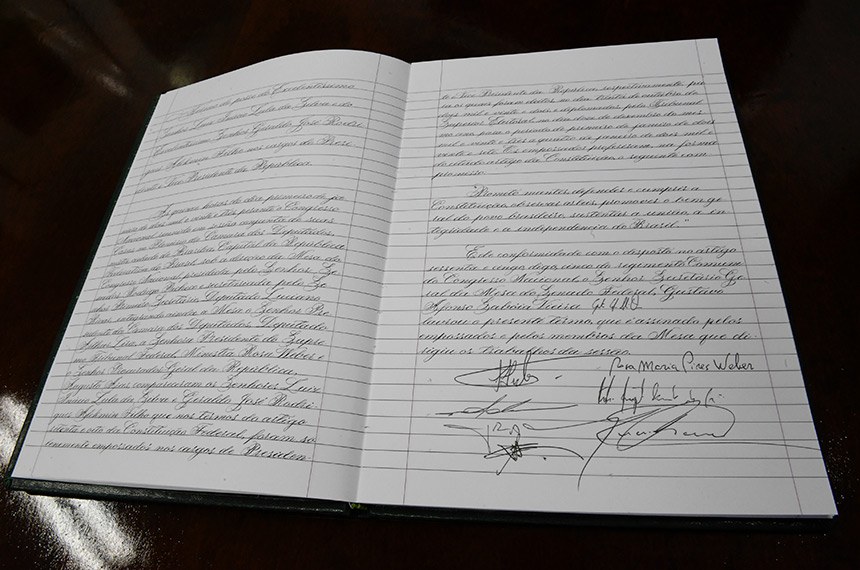 Termo de posse do Excelentíssimo
Senhor Luiz Inácio Lula da Silva e do
Excelentíssimo Senhor Geraldo José Rodri
gues Alckmin Filho nos cargos de Presi
dente e Vice-Presidente da República.
Às quinze horas do dia primeiro de ja
neiro de dois mil e vinte e três, perante o Congresso
Nacional reunido em sessão conjunta
Casas no Plenário da Câmara dos Deputados,
Capital da República
Federativa do Brasil, sob a direção da Mesa do
Congresso Nacional presidida pelo Senhor Se
nador Rodrigo Pacheco e secretariada pelo Se
nhor Primeiro Secretário Deputado Luciano
Bivar, integrando ainda a Mesa o Senhor Pre
sidente da Câmara dos Deputados, Deputado
Arthur Lira, a Senhora Presidente do Supre
mo Tribunal Federal, Ministra Rosa Weber e
o Senhor Procurador Geral da República,
Augusto Aras compareceram os Senhores Luiz
Inácio Lula da Silva e Geraldo José Rodri
gues Alckmin Filho que nos termos do artigo
setenta e oito da Constituição Federal foram so
lenemente empossados nos cargos de Presiden
te e Vice-Presidente da República, respectivamente, pa
ra os quais foram eleitos no dia trinta de outubro de
dois mil e vinte e dois e diplomados pelo Tribunal
Superior Eleitoral no dia doze de dezembro do mes
mo ano para o período de primeiro de janeiro de dois
mil e vinte e três a quatro de janeiro de dois mil e
vinte e sete. Os empossados proferiram, na forma
do citado artigo da Constituição, o seguinte com
promisso:
"Prometo manter, defender e cumprir a
Constituição, observar as leis, promover o bem ge
ral do povo brasileiro, sustentar a união, a in
tegridade e a independência do Brasil."
E de conformidade com o disposto no artigo
sessenta e cinco do Regimento Comum
do Congresso Nacional, o Senhor Secretário Ge
ral da Mesa do Senado Federal, Gustavo
Afonso Sabóia Vieira
lavrou o presente termo que é assinado pelos
empossados e pelos membros da Mesa que di
rigiu os trabalhos da sessão.
Rosa Maria Pires Weber